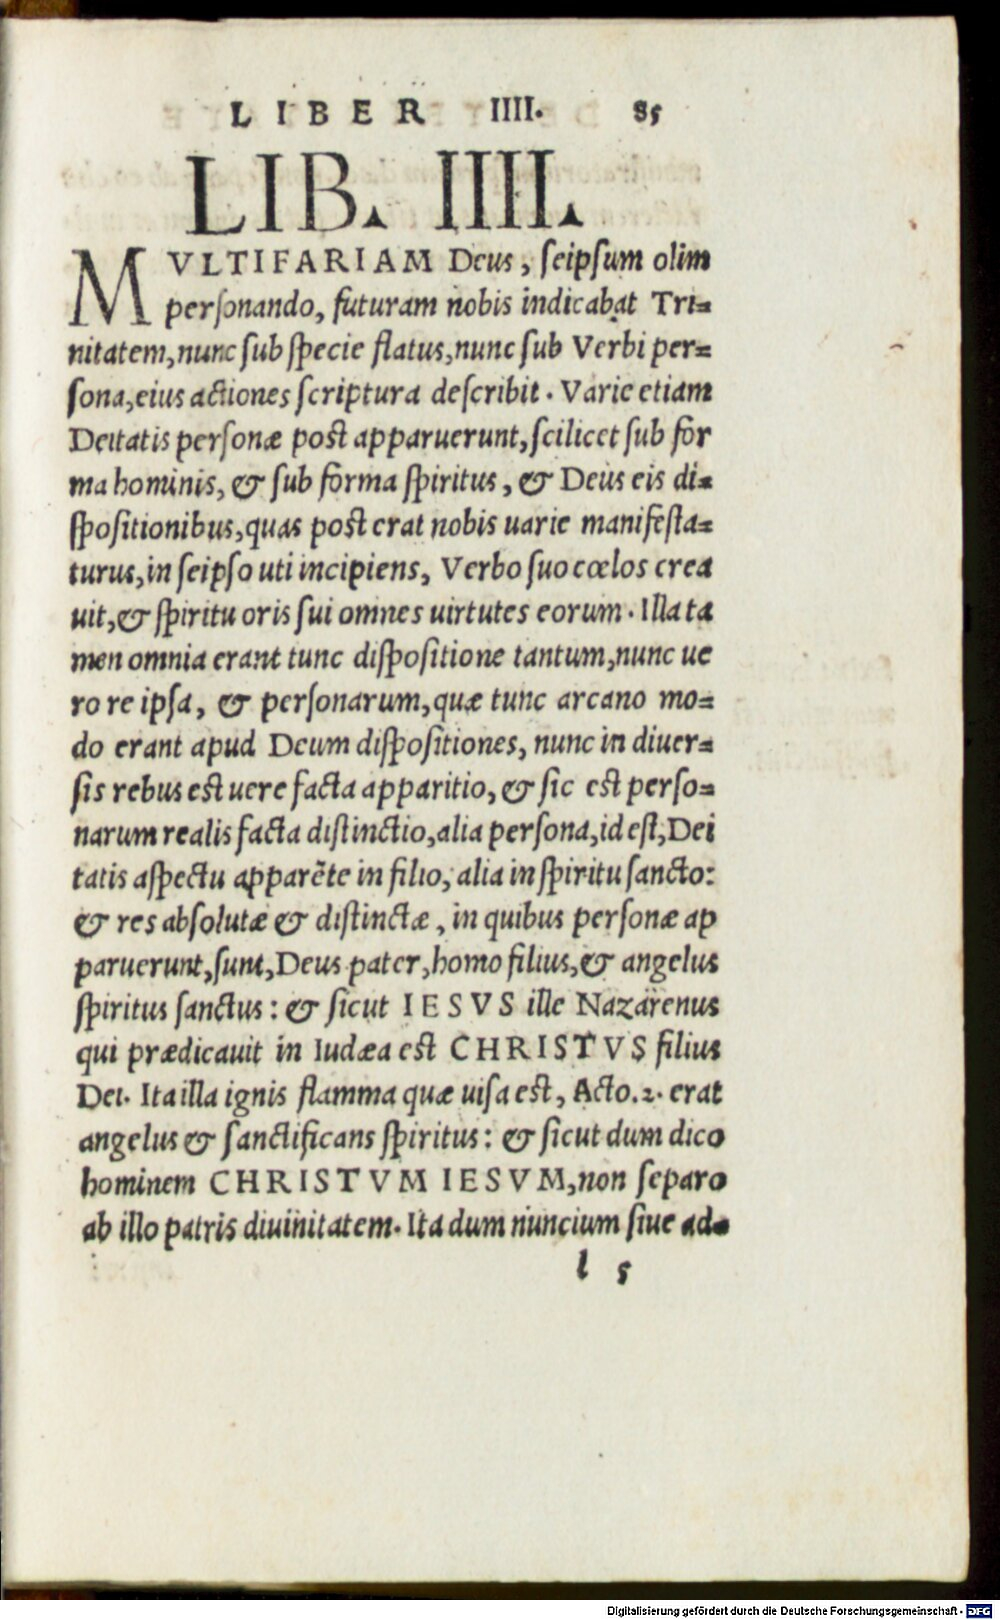 LIBER IIII. 85
LIB. IIII.
MVLTIFARIAM Deus, seipsum olim
personando, futuram nobis indicabat Tri=
nitatem, nunc sub specie flatus, nunc sub Verbi per=
sona, eius actiones scriptura describit. Varie etiam
Deitatis personæ post apparuerunt, scilicet sub for
ma hominis, & sub forma spiritus, & Deus eis di=
spositionibus, quas post erat nobis uarie manifesta=
turus, in seipso uti incipiens, Verbo suo cœlos crea
uit, & spiritu oris sui omnes uirtutes eorum. Illa ta
men omnia erant tunc dispositione tantum, nunc ue
ro re ipsa, & personarum, quæ tunc arcano mo=
do erant apud Deum dispositiones, nunc in diuer=
sis rebus est uere facta apparitio, & sic est perso=
narum realis facta distinctio, alia persona, id est, Dei
tatis aspectu apparẽte in filio, alia in spiritu sancto:
& res absolutæ & distinctæ, in quibus personæ ap
paruerunt, sunt, Deus pater, homo filius, & angelus
spiritus sanctus: & sicut IESVS ille Nazarenus
qui prædicauit in Iudæa est CHRISTVS filius
Dei. Ita illa ignis flamma quæ uisa est, Acto.2. erat
angelus & sanctificans spiritus: & sicut dum dico
hominem CHRISTVM IESVM, non separo
ab illo patris diuinitatem. Ita dum nuncium siue ad=
l 5
Digitalisierung gefördert durch die Deutsche Forschungsgemeinschaft - DFG